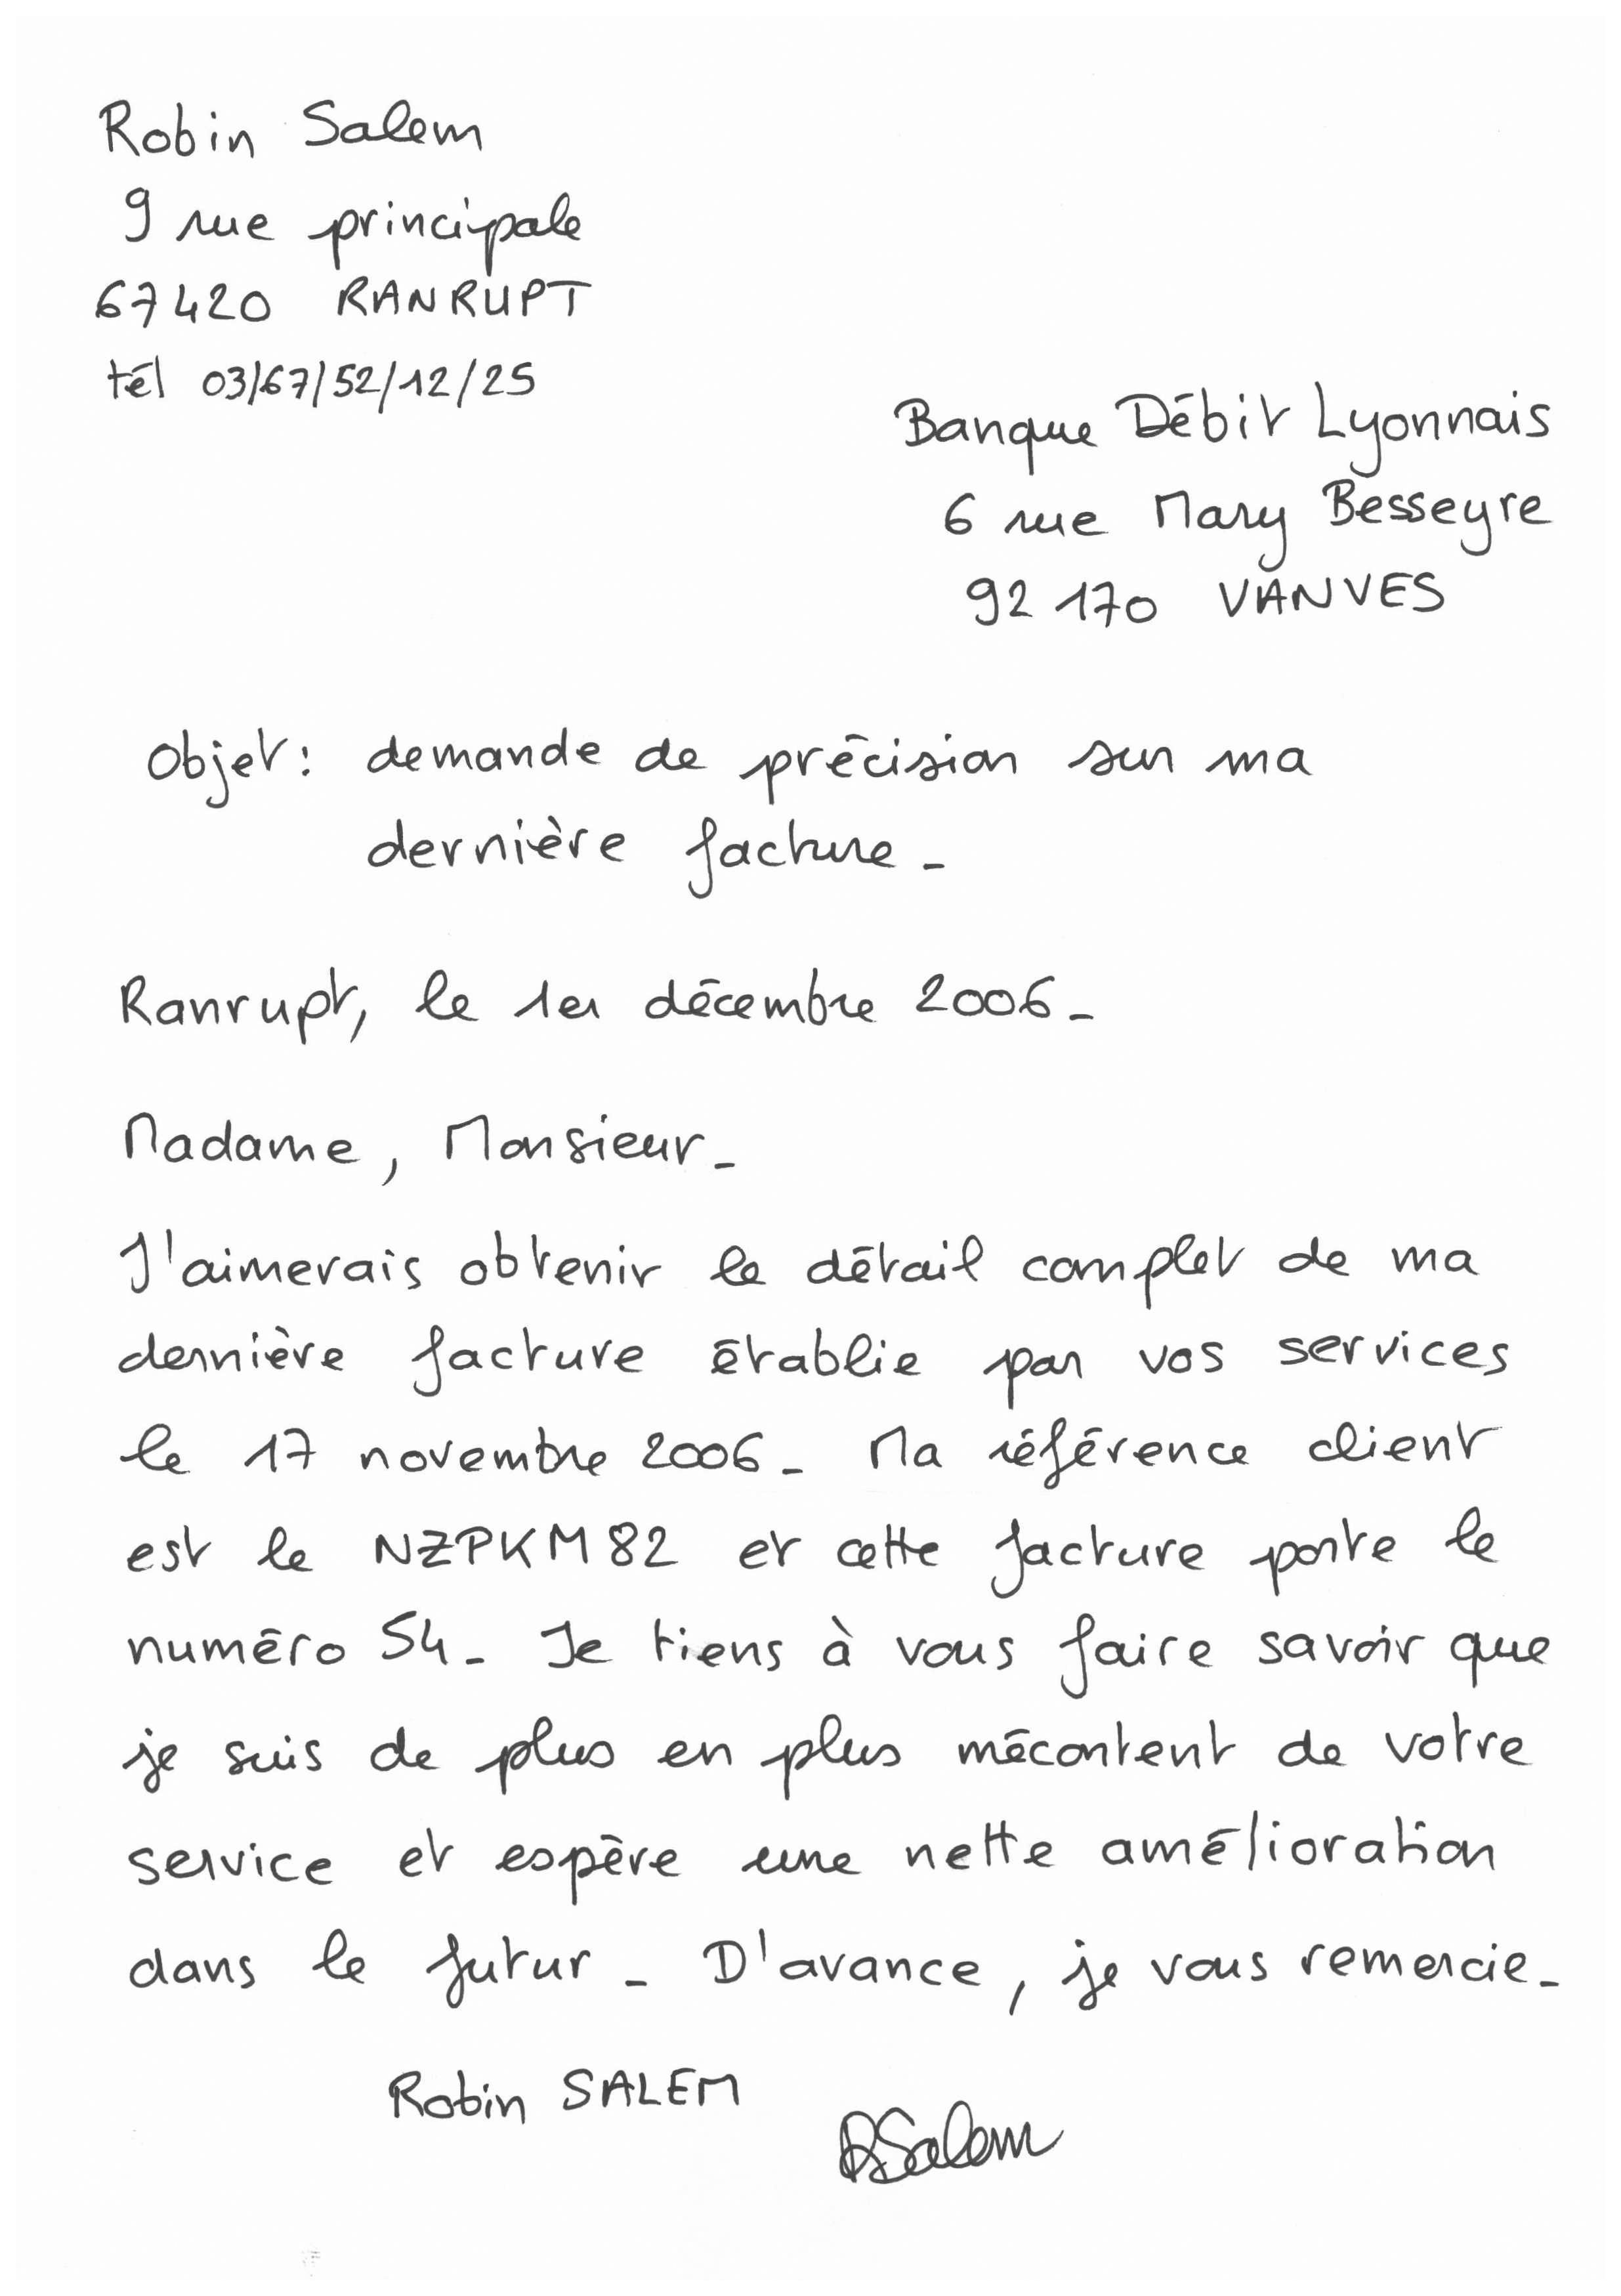 Robin Salem
9 rue principale
67420 RANRUPT
tél 03/67/52/12/25
Banque Débit Lyonnais
6 rue Mary Besseyre
92 170 VANVES
Objet : demande de précision sur ma
dernière facture.
Ranrupt, le 1er décembre 2006.
Madame, Monsieur.
J'aimerais obtenir le détail complet de ma
dernière facture établie par vos services
le 17 novembre 2006. Ma référence client
est le NZPKM82 et cette facture porte le
numéro 54. Je tiens à vous faire savoir que
je suis de plus en plus mécontent de votre
service et espère une nette amélioration
dans le futur. D'avance, je vous remercie.
Robin SALEM
RSalem